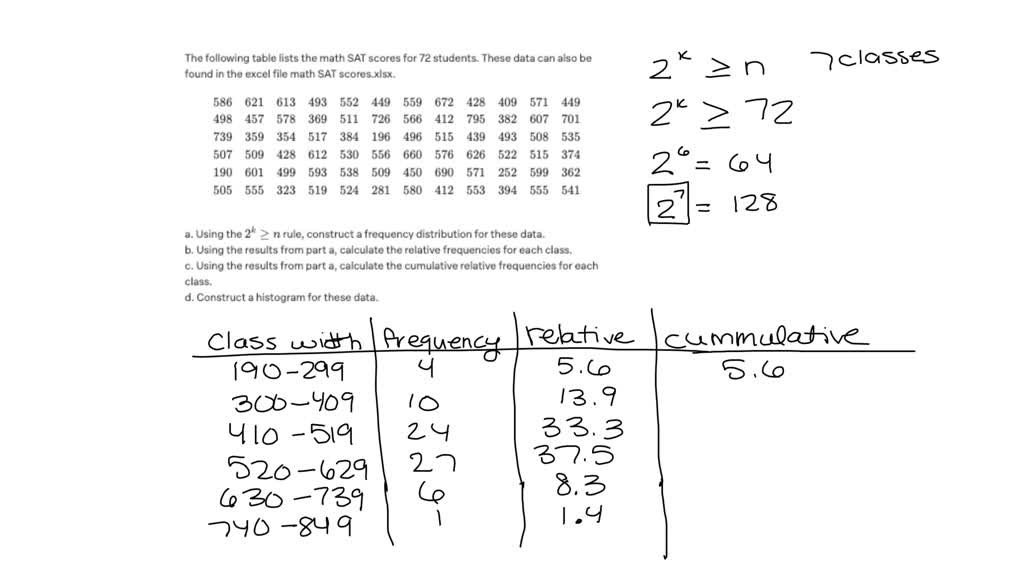 The following table lists the math SAT scores for 72 students. These data can also be
found in the excel file math SAT scores.xlsx.
586 621 613 493 552 449 559 672 428 409 571 449
498 457 578 369 511 726 566 412 795 382 607 701
739 359 354 517 384 196 496 515 439 493 508 535
507 509 428 612 530 556 660 576 626 522 515 374
190 601 499 593 538 509 450 690 571 252 599 362
505 555 323 519 524 281 580 412 553 394 555 541
a. Using the 2^k ≥ n rule, construct a frequency distribution for these data.
b. Using the results from part a, calculate the relative frequencies for each class.
c. Using the results from part a, calculate the cumulative relative frequencies for each
class.
d. Construct a histogram for these data.
2^k ≥ n 7 classes
2^k ≥ 72
2^6 = 64
2^7 = 128
class width frequency relative cummulative
190-299 4 5.6 5.6
300-409 10 13.9
410-519 24 33.3
520-629 27 37.5
630-739 6 8.3
740-849 1 1.4